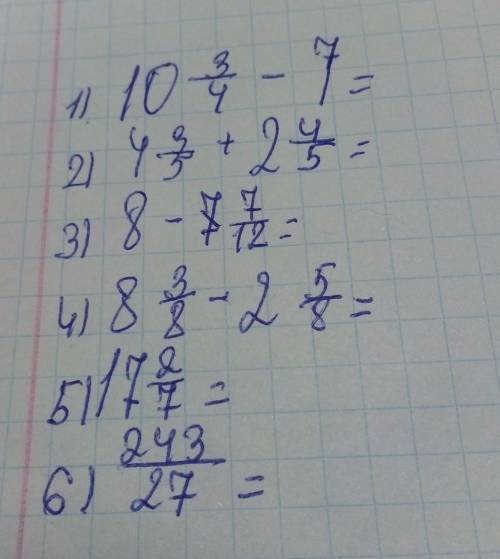 1) 10 3/4 - 7 =
2) 4 3/5 + 2 4/5 =
3) 8 - 7 7/12 =
4) 8 3/8 - 2 5/8 =
5) 17 2/7 =
6) 243/27 =